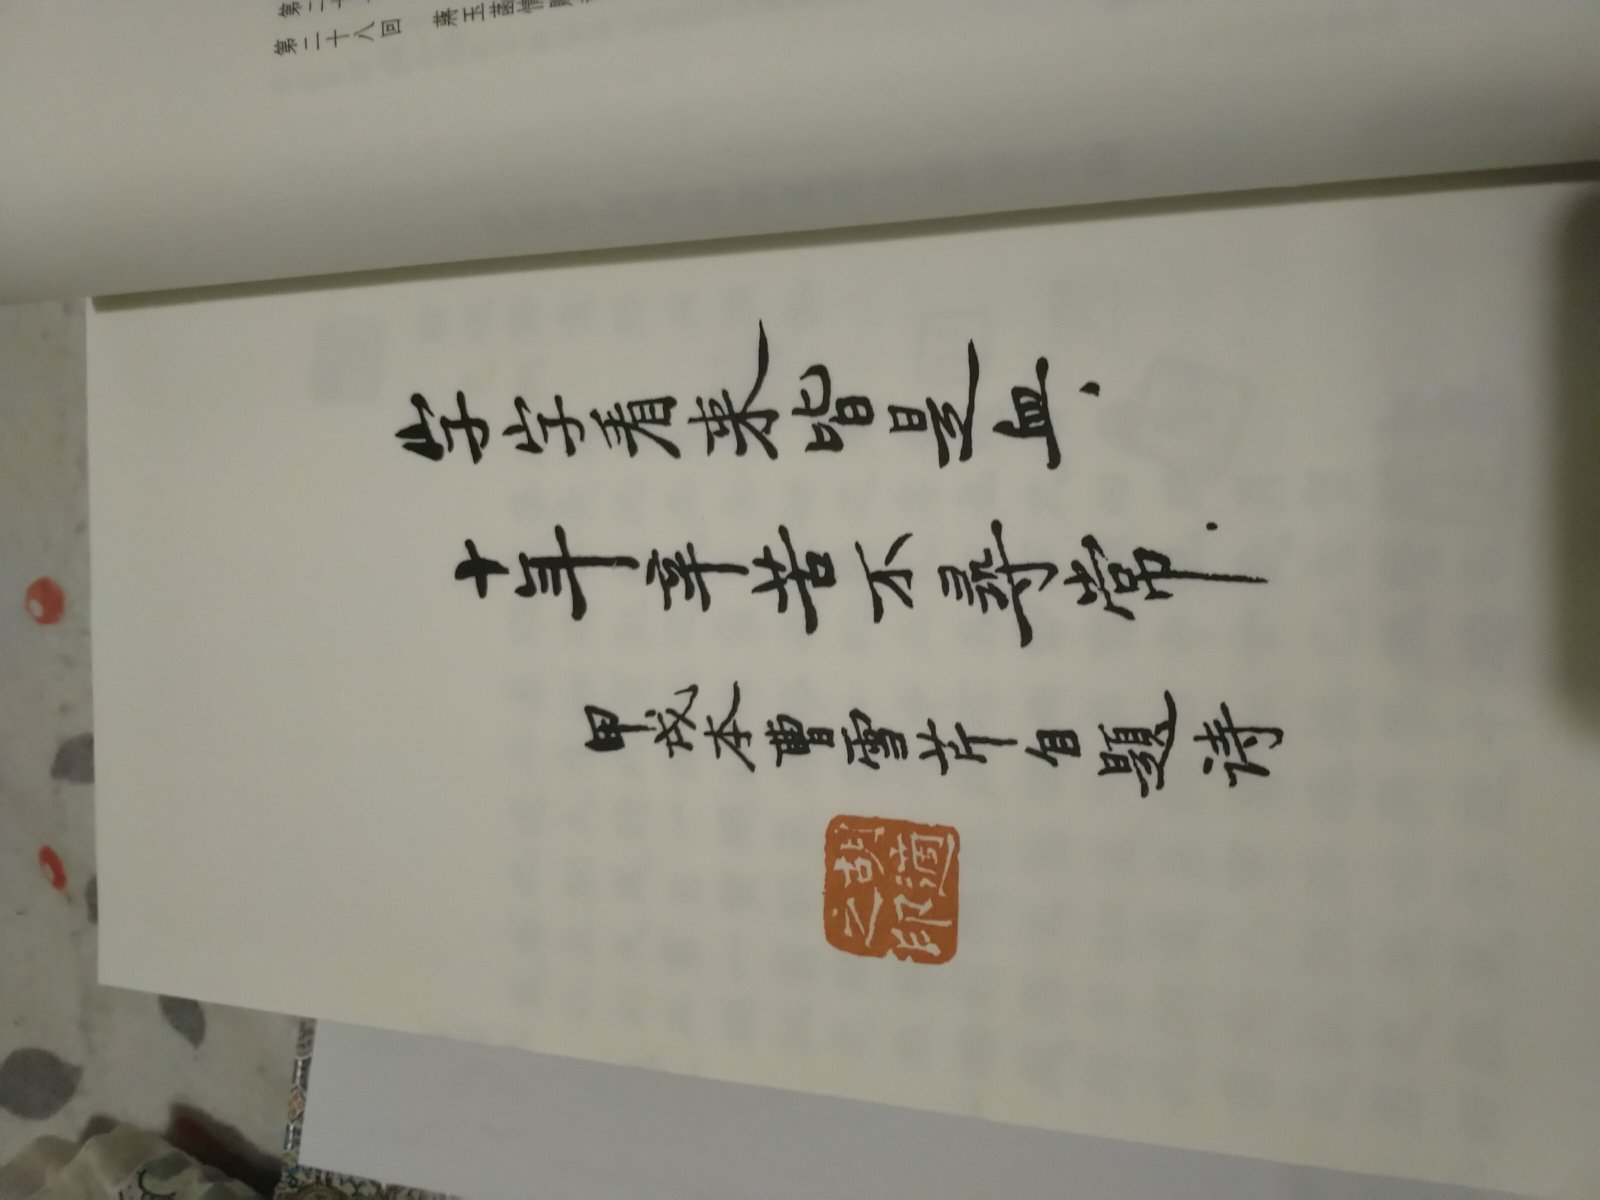 第二十
第二十八回 蔣玉菡情
字字看來皆是血，
十年辛苦不尋常．
甲戌本曹雪芹自題詩
胡適
之印